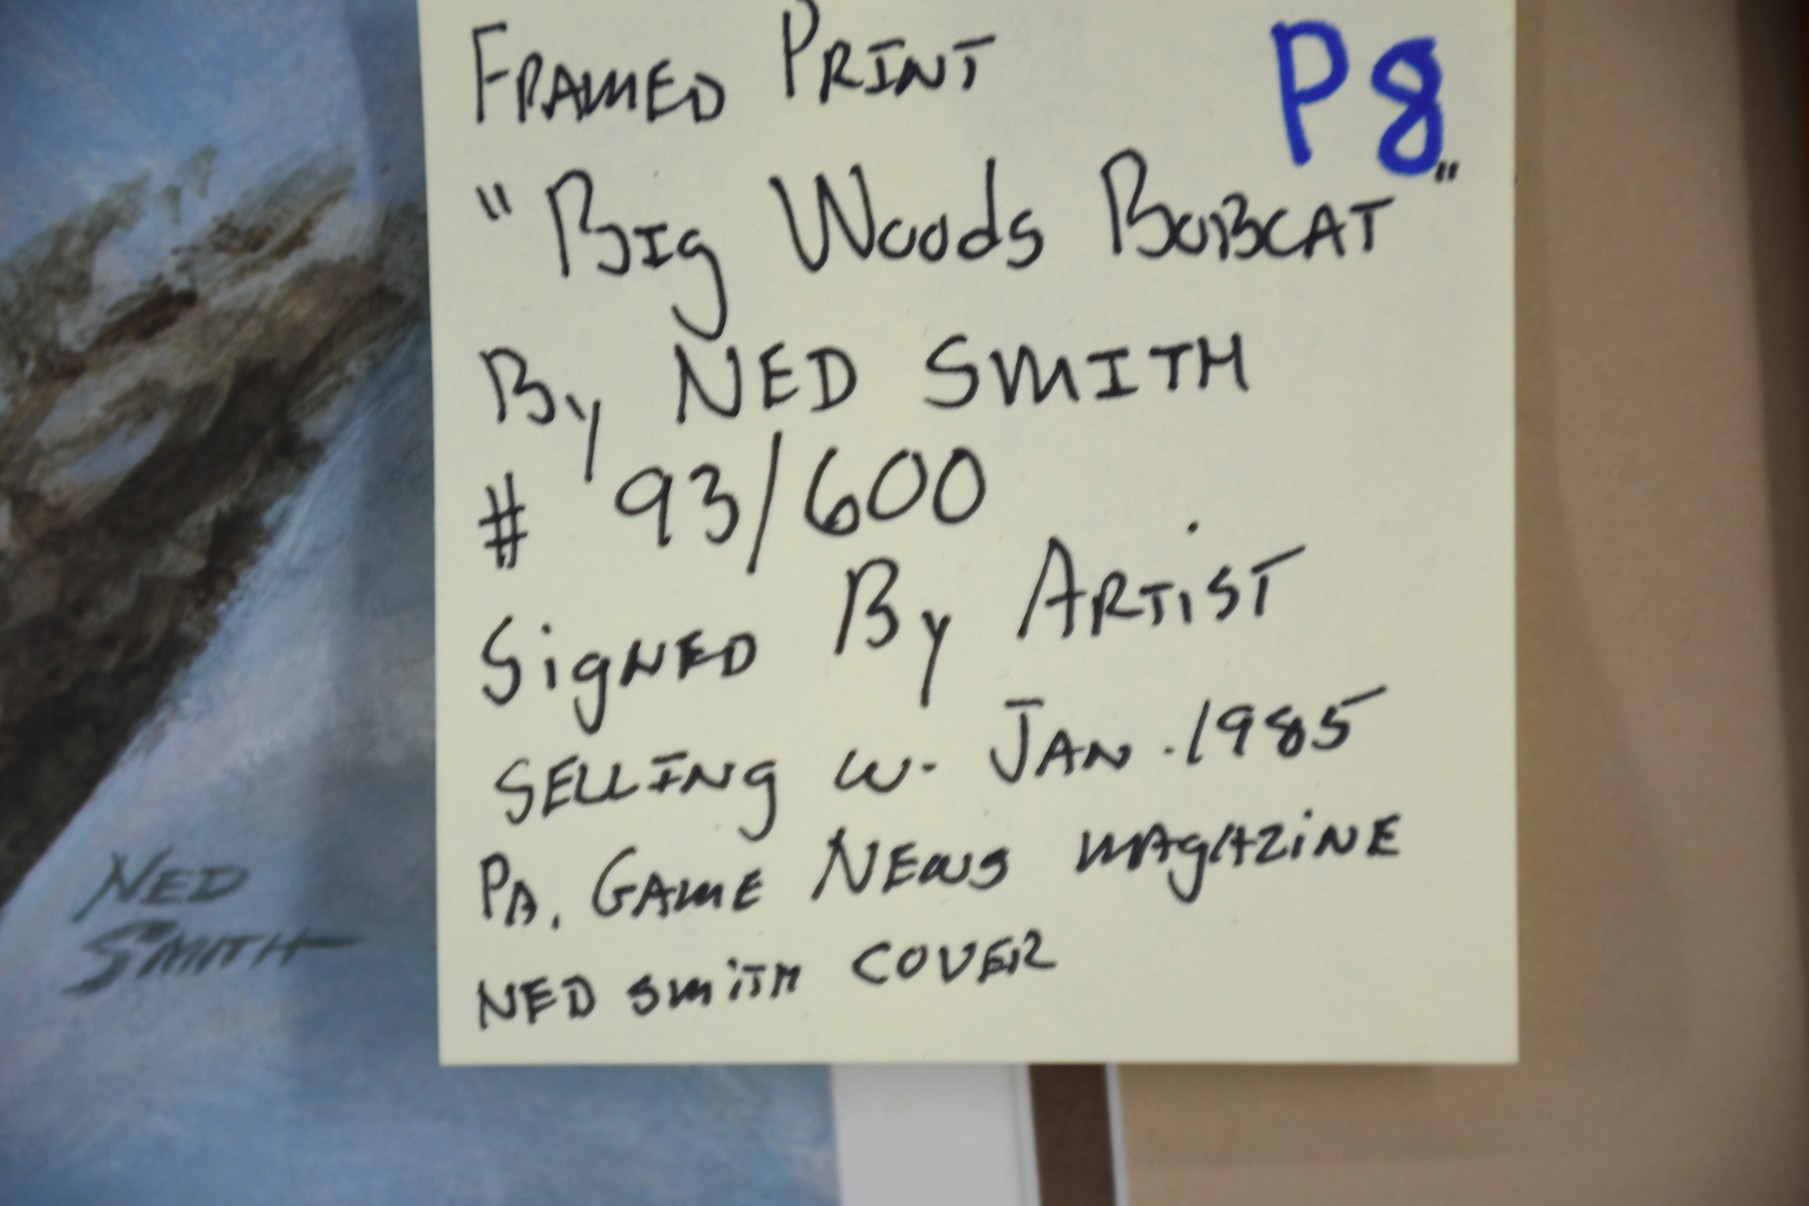 FRAMED PRINT P8
"BIg WooDs BOBCAT"
By NED SMITH
# 93/600
SigNED By ARTiST
SELLINg W. JAN. 1985
PA. GAME NEWS MAgAZiNE
NED SMiTH COVER
NED
SMITH